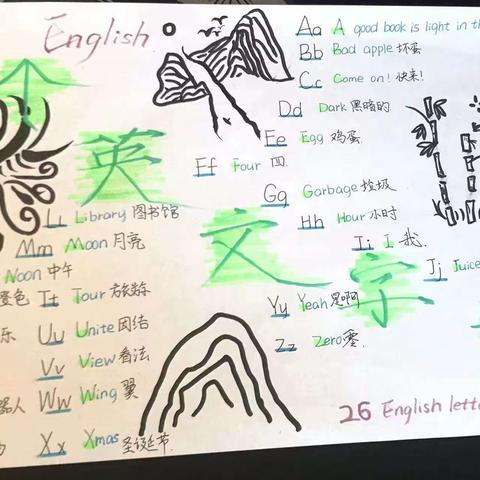 English
Aa A good book is light in th
Bb Bad apple 坏蛋
Cc Come on! 快来!
Dd Dark 黑暗的
Ee Egg 鸡蛋
Ff Four 四.
Gg Garbage 垃圾
Hh Hour 小时
Ii I 我.
Jj Juice
个英文字
Ll Library 图书馆
Mm Moon 月亮
Noon 中午
色 Tt Tour 旅游
乐 Uu Unite 团结
Vv View 看法
器人 Ww Wing 翼
Xx Xmas 圣诞节.
Yy Yeah 是啊
Zz Zero 零.
26 English lette